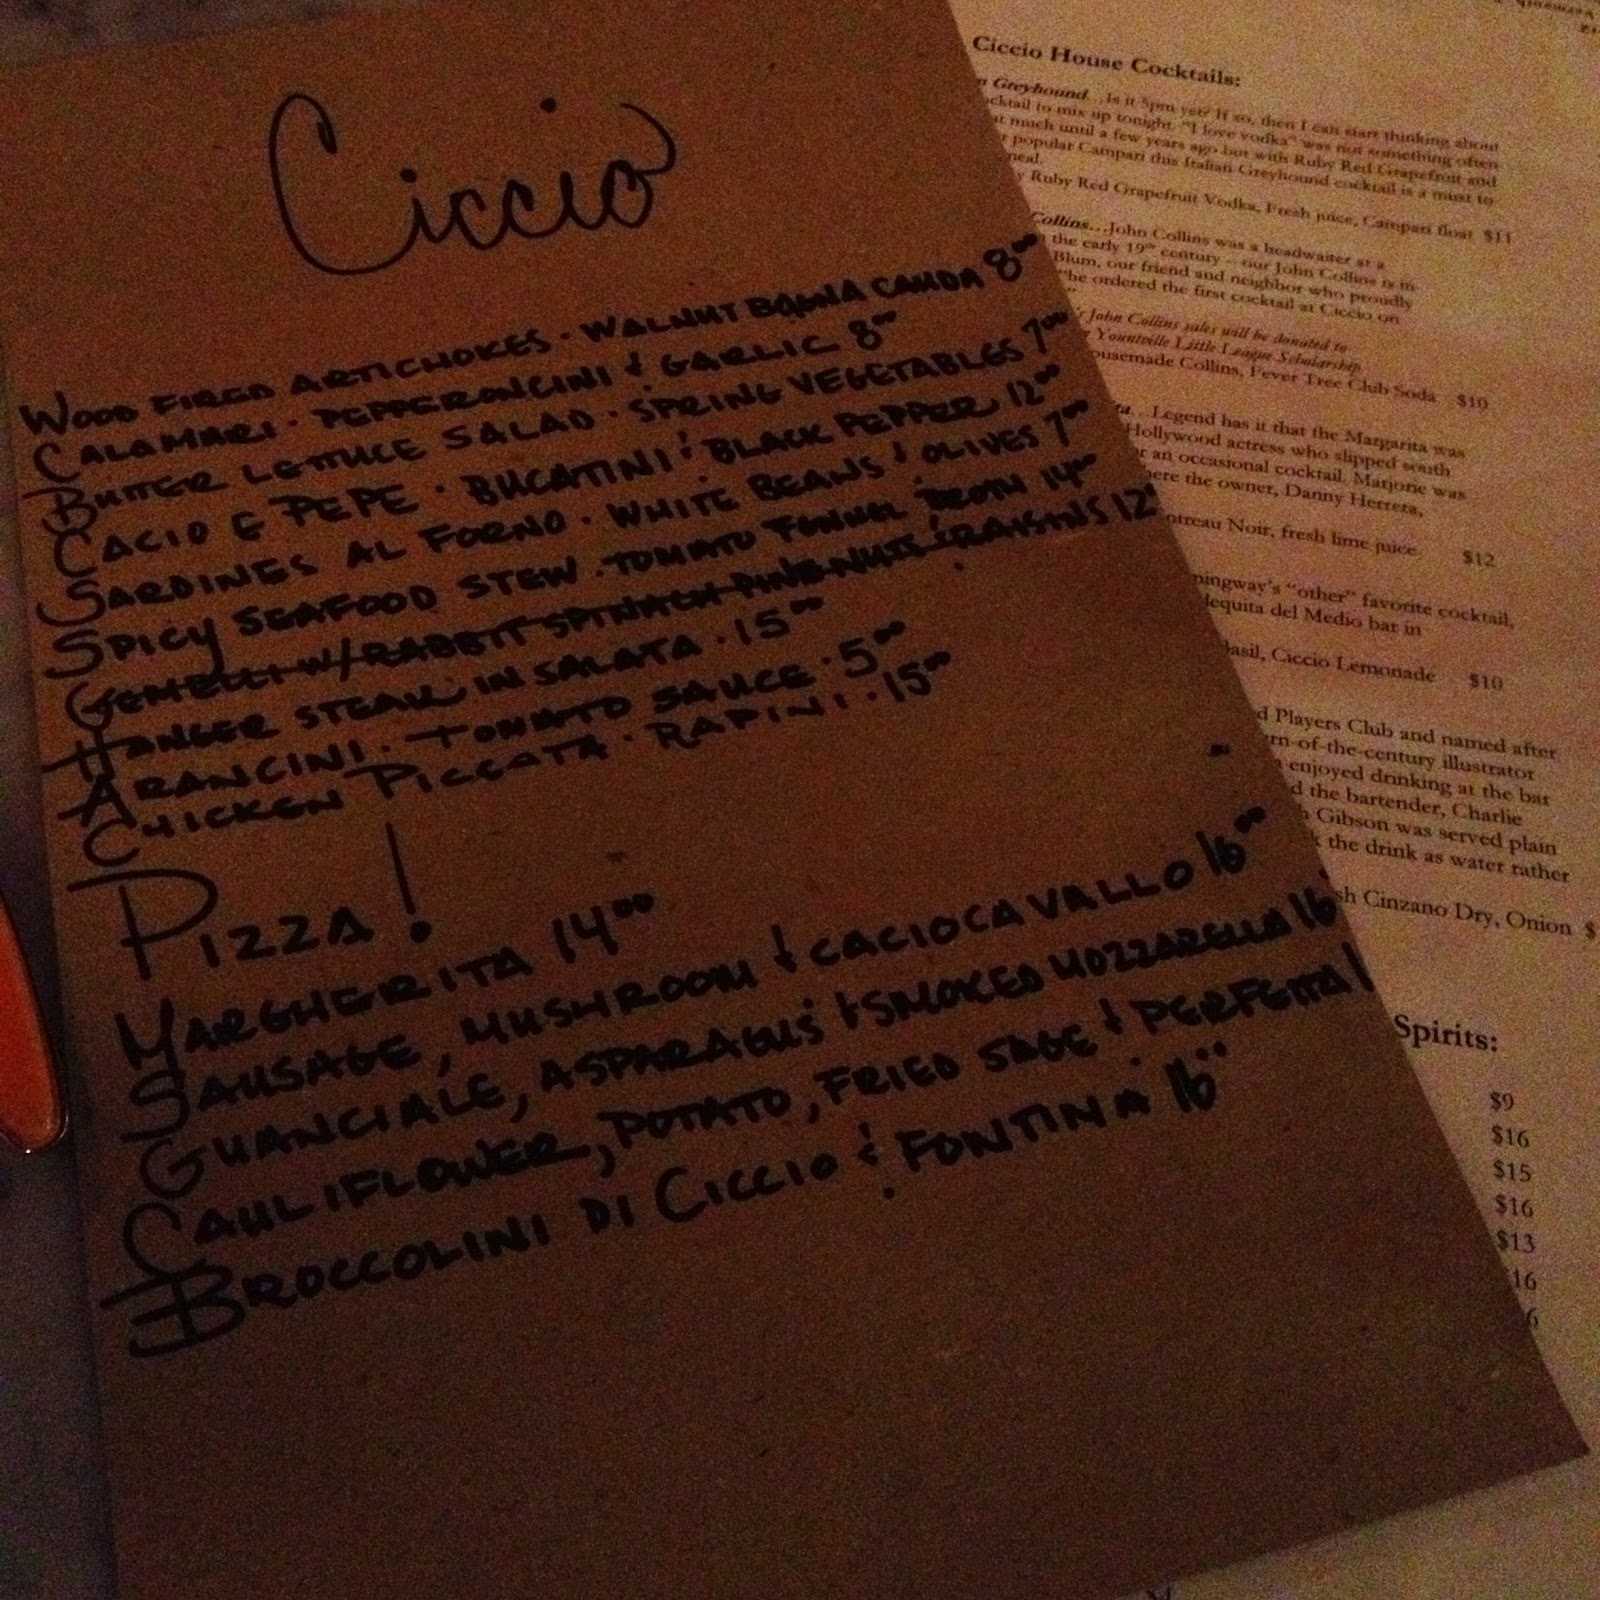 Ciccio
WOOD FIRED ARTICHOKES · WALNUT BAGNA CAUDA 8⁰⁰
CALAMARI · PEPPERONCINI & GARLIC 8⁰⁰
BUTTER LETTUCE SALAD · SPRING VEGETABLES 7⁰⁰
CACIO E PEPE · BUCATINI & BLACK PEPPER 12⁰⁰
SARDINES AL FORNO · WHITE BEANS & OLIVES 7⁰⁰
SPICY SEAFOOD STEW · TOMATO FENNEL BROTH 14⁰⁰
GEMELLI W/ RABBIT SPINACH PINE NUTS & RAISINS 12
HANGER STEAK IN SALATA · 15⁰⁰
ARANCINI · TOMATO SAUCE · 5⁰⁰
CHICKEN PICCATA · RAPINI · 15⁰⁰
PIZZA!
MARGHERITA 14⁰⁰
SAUSAGE, MUSHROOM & CACIOCAVALLO 16⁰⁰
GUANCIALE, ASPARAGUS & SMOKED MOZZARELLA 16
CAULIFLOWER, POTATO, FRIED SAGE & PERFETTA 1
BROCCOLINI DI CICCIO & FONTINA 16
Ciccio House Cocktails:
Greyhound...Is it 5pm yet? If so, then I can start thinking about
cktail to mix up tonight. "I love vodka" was not something often
much until a few years ago but with Ruby Red Grapefruit and
popular Campari this Italian Greyhound cocktail is a must to
meal.
Ruby Red Grapefruit Vodka, Fresh juice, Campari float $11
Collins...John Collins was a headwaiter at a
the early 19th century – our John Collins is in
Blum, our friend and neighbor who proudly
he ordered the first cocktail at Ciccio on
John Collins sales will be donated to
Yountville Little League Scholarship
ousemade Collins, Fever Tree Club Soda $10
Legend has it that the Margarita was
Hollywood actress who slipped south
r an occasional cocktail. Marjorie was
ere the owner, Danny Herrera,
ntreau Noir, fresh lime juice $12
mingway's "other" favorite cocktail,
dequita del Medio bar in
asil, Ciccio Lemonade $10
d Players Club and named after
rn-of-the-century illustrator
enjoyed drinking at the bar
d the bartender, Charlie
Gibson was served plain
k the drink as water rather
sh Cinzano Dry, Onion $
Spirits:
$9
$16
$15
$16
$13
16
6